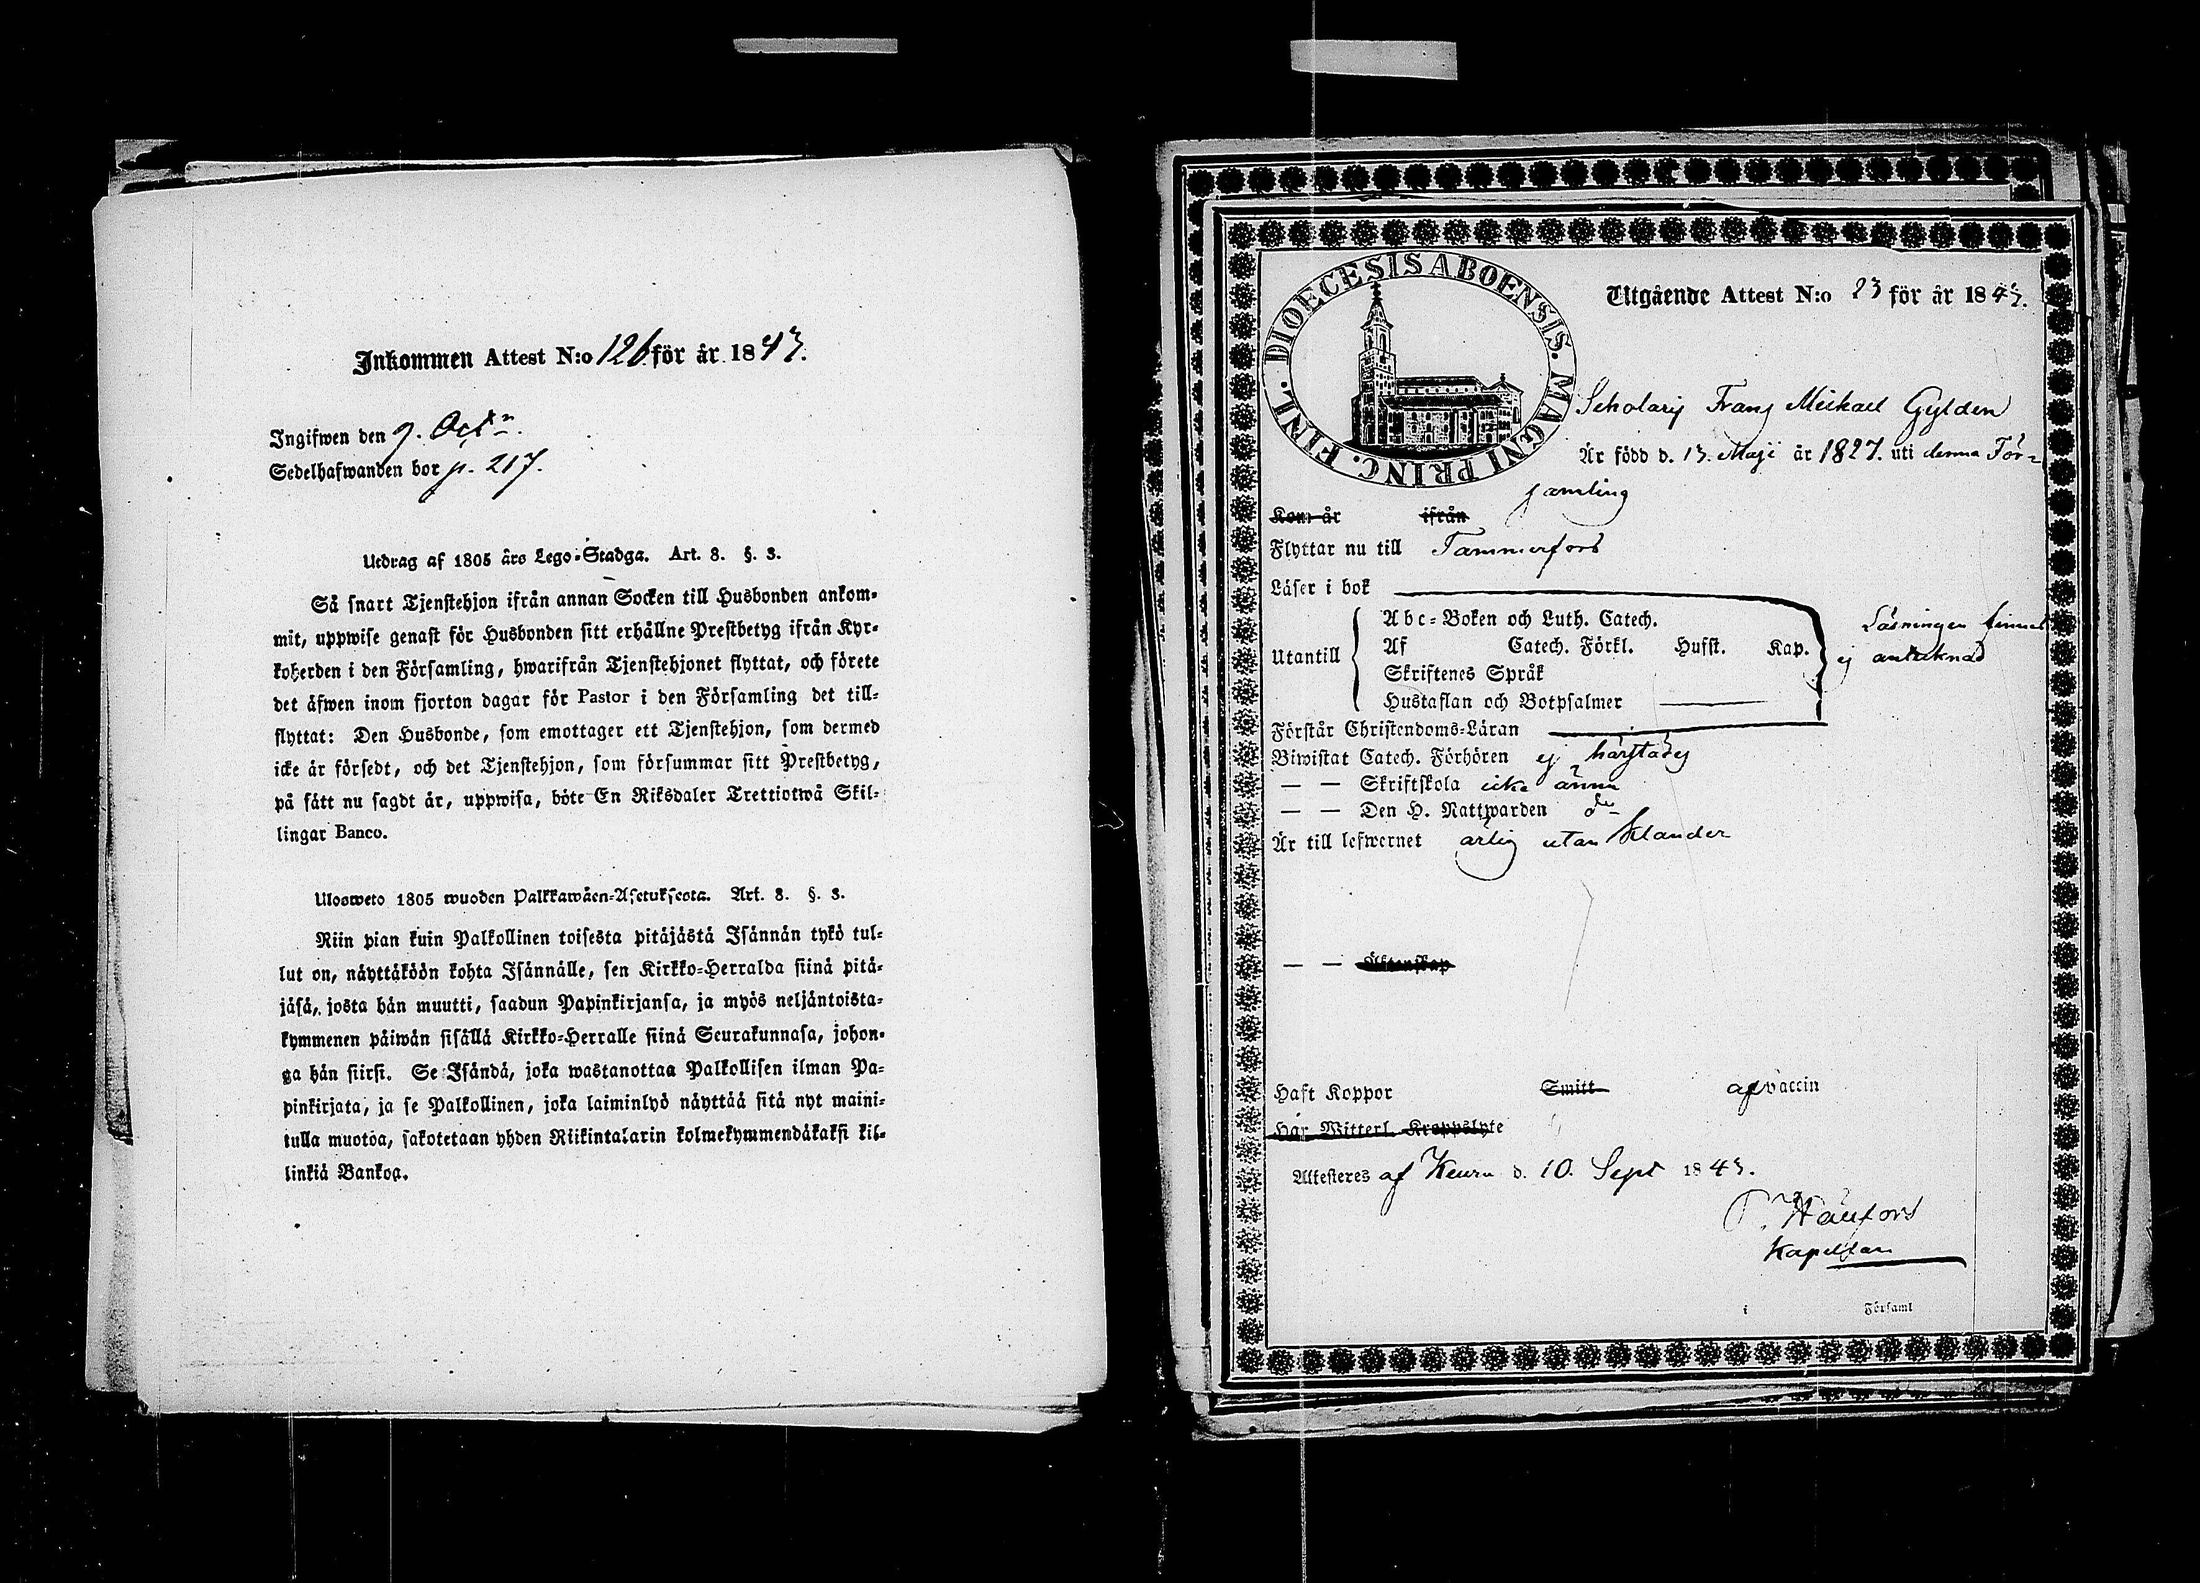 Inkommen Attest N:o 126 för år 1843.
Ingifwen den 9. Octr.
Sedelhafwanden bor p. 217.
Utdrag af 1805 års Lego-Stadga. Art. 8. §. 3.
Så snart Tjenstehjon ifrån annan Socken till Husbonden ankom-
mit, uppwise genast för Husbonden sitt erhållne Prestbetyg ifrån Kyr-
koherden i den Församling, hwarifrån Tjenstehjonet flyttat, och förete
det äfwen inom fjorton dagar för Pastor i den Församling det till-
flyttat: Den Husbonde, som emottager ett Tjenstehjon, som dermed
icke är försedt, och det Tjenstehjon, som försummar sitt Prestbetyg,
på sätt nu sagdt är, uppwisa, böte En Riksdaler Trettiotwå Skil-
lingar Banco.
Ulosweto 1805 wuoden Palkkawäen-Asetuksesta. Art. 8. §. 3.
Niin pian kuin Palkollinen toisesta pitäjästä Isännän tykö tul-
lut on, näyttäköön kohta Isännälle, sen Kirkko-Herralda siinä pitä-
jäsä, josta hän muutti, saadun Papinkirjansa, ja myös neljäntoista-
kymmenen päiwän sisällä Kirkko-Herralle siinä Seurakunnasa, johon-
ga hän siirsi. Se Isändä, joka wastanottaa Palkollisen ilman Pa-
pinkirjata, ja se Palkollinen, joka laiminlyö näyttää sitä nyt maini-
tulla muotoa, sakotetaan yhden Riikintalarin kolmekymmendäkaksi kil-
linkiä Bankoa.
DIOECESIS ABOENSIS. MAGNI PRINC. FINL.
Utgående Attest N:o 23 för år 1843.
Scholaris Frans Mickael Gylden
Är född d. 13. Maji år 1827. uti denna För=
samling
Kom år ifrån
Flyttar nu till Tammerfors
Läser i bok
Abc-Boken och Luth. Catech.
Läsningen finnes
Utantill Af Catech. Förkl. Husst. Kap. ej antecknad
Skriftenes Språk
Hustaflan och Botpsalmer
Förstår Christendoms-Läran
Biwistat Catech. Förhören ej härstädes
— — Skriftskola icke ännu
— — Den H. Nattwarden do
Är till lefwernet ärlig utan klander
— — Äktenskap
Haft Koppor Smitt af vaccin
Har Witterl. Kroppslyte
Attesteres af Keuru d. 10. Sept 1843.
Kapellan
i Församl